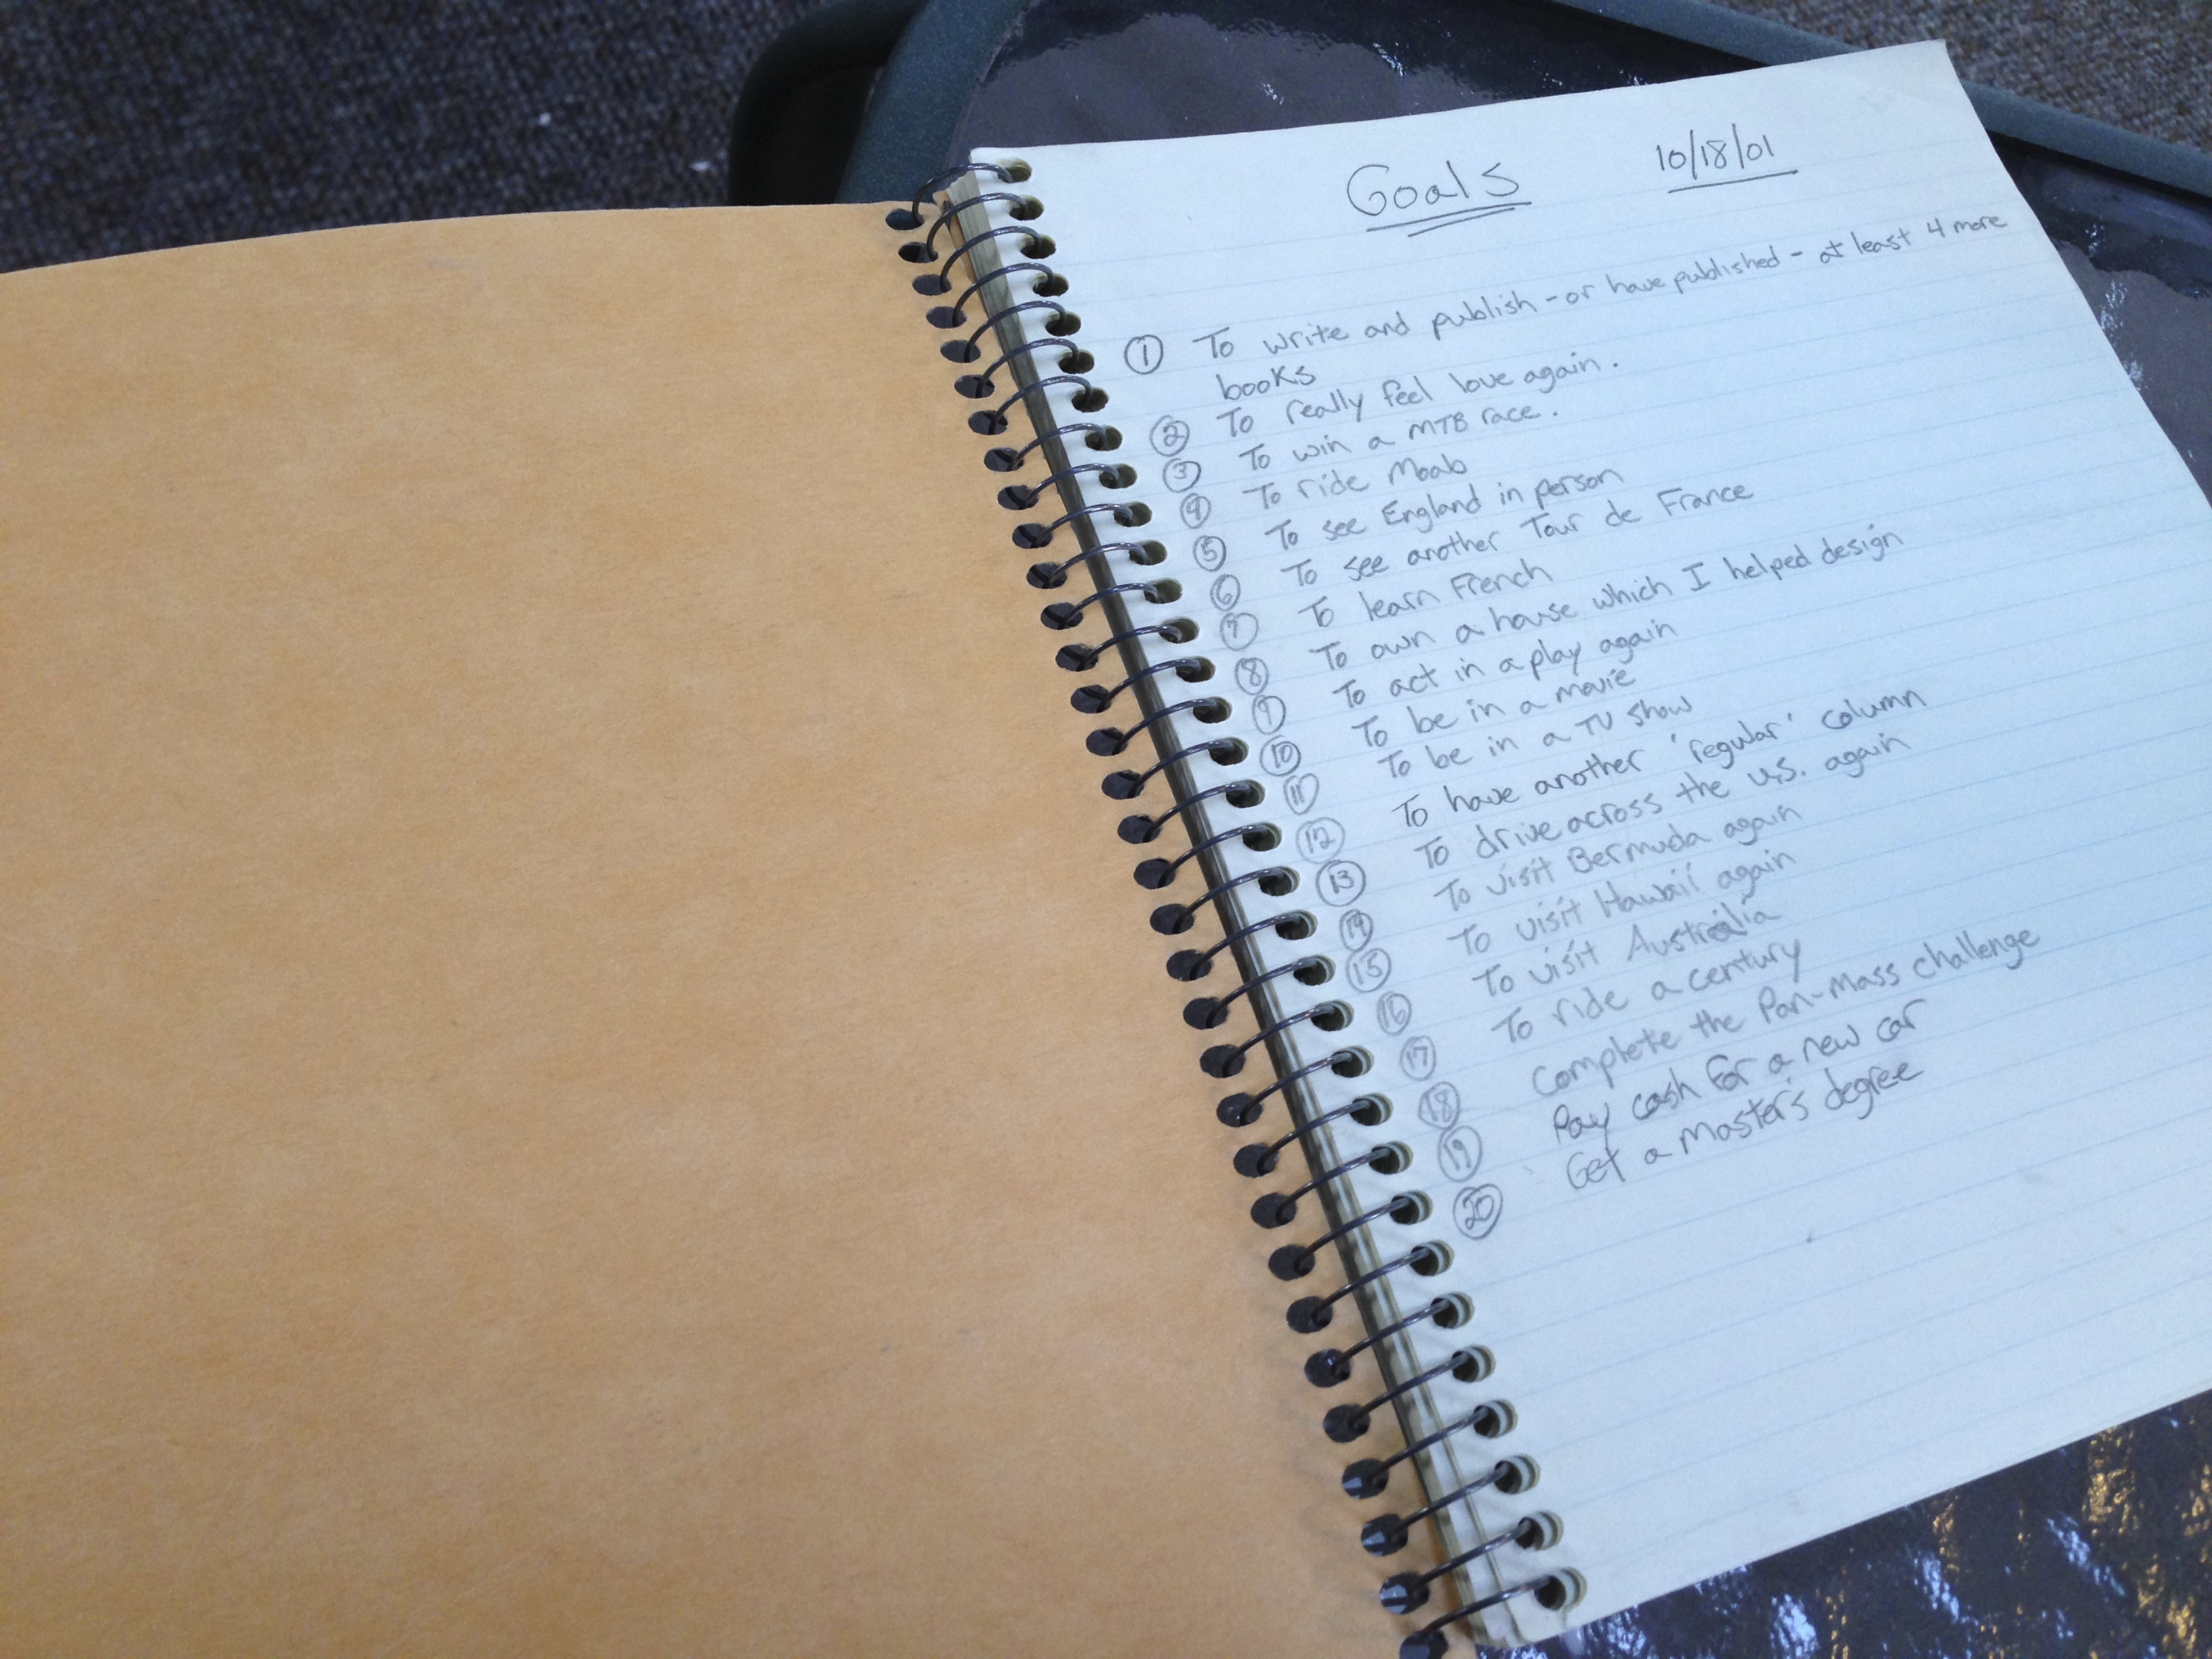 Goals 10/18/01
① To write and publish - or have published - at least 4 more
books
② To really feel love again.
③ To win a MTB race.
④ To ride Moab
⑤ To see England in person
⑥ To see another Tour de France
⑦ To learn French
⑧ To own a house which I helped design
⑨ To act in a play again
⑩ To be in a movie
⑪ To be in a TV show
⑫ To have another 'regular' column
⑬ To drive across the U.S. again
⑭ To visit Bermuda again
⑮ To visit Hawaii again
⑯ To visit Australia
⑰ To ride a century
⑱ Complete the Pan-Mass challenge
⑲ Pay cash for a new car
⑳ Get a Master's degree